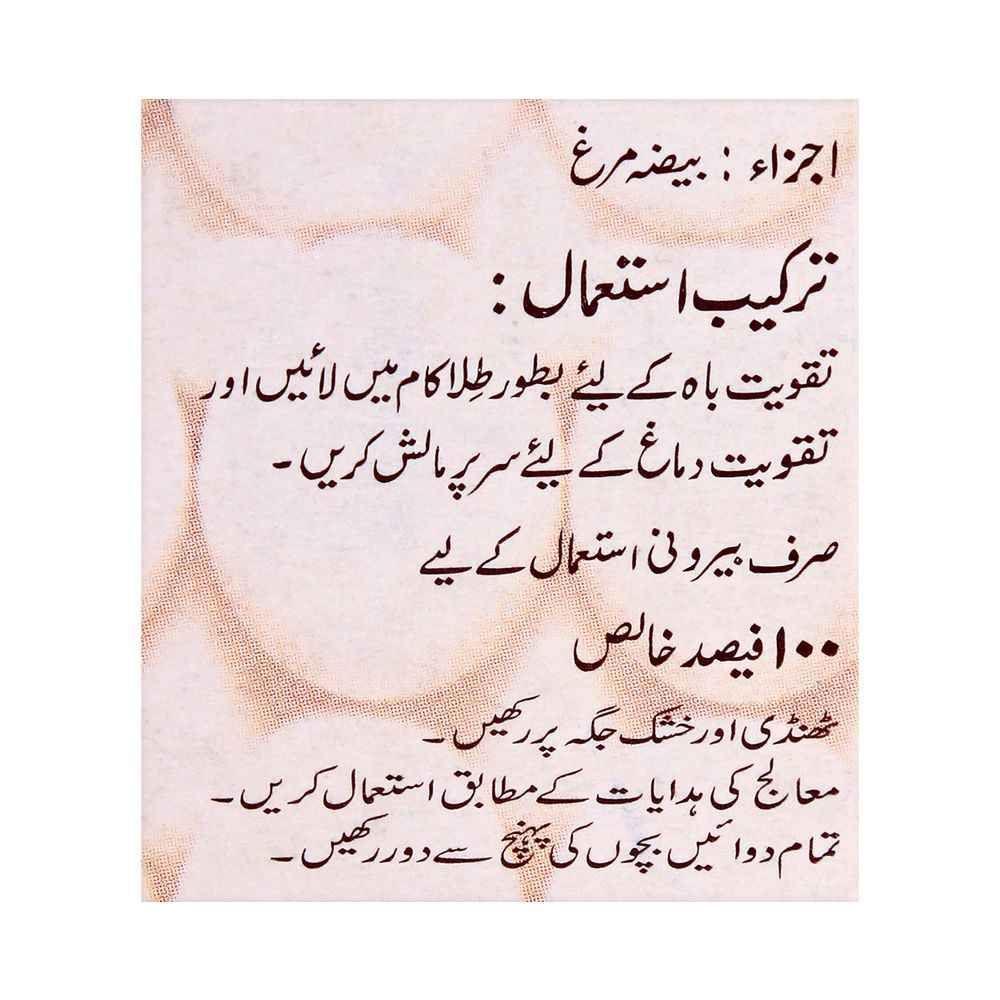 اجزاء : بیضہ مرغ
ترکیب استعمال :
تقویت باہ کے لیئے بطور طِلا کام میں لائیں اور
تقویت دماغ کے لیئے سر پر مالش کریں۔
صرف بیرونی استعمال کے لیے
۱۰۰ فیصد خالص
ٹھنڈی اور خشک جگہ پر رکھیں۔
معالج کی ہدایات کے مطابق استعمال کریں۔
تمام دوائیں بچوں کی پہنچ سے دور رکھیں۔